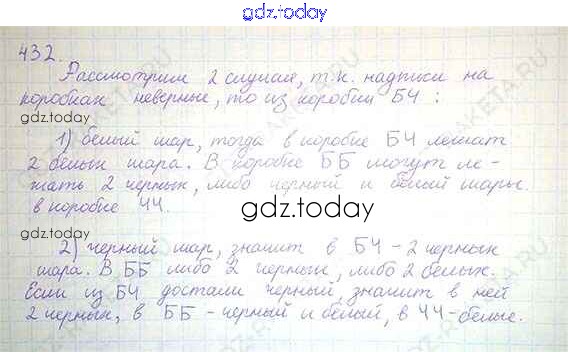 gdz.today
432.
Рассмотрим 2 случая, т.к. надписи на
коробках неверные, то из коробки БЧ :
gdz.today
1) белый шар, тогда в коробке БЧ лежат
2 белых шара. В коробке ББ могут ле-
жать 2 черных, либо черный и белый шары.
в коробке ЧЧ.
gdz.today
gdz.today
2) черный шар, значит в БЧ - 2 черных
шара. В ББ либо 2 черных, либо 2 белых.
Если из БЧ достали черный, значит в ней
2 черных, в ББ - черный и белый, в ЧЧ - белые.
gdz.today